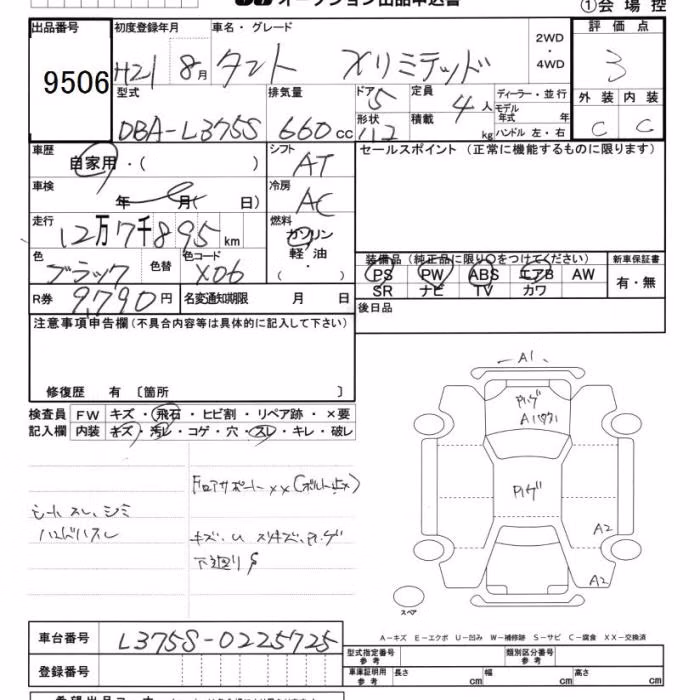 オークション出品申込書
①会場控
出品番号 初度登録年月 車名・グレード 2WD・4WD 評価点
9506 H21 8月 タント Xリミテッド 3
型式 排気量 ドア 5 定員 4人 ディーラー・並行 外装 内装
DBA-L375S 660cc 形状 積載 kg モデル年式 年 ハンドル 左・右 C C
車歴 自家用・( ) シフト AT セールスポイント (正常に機能するものに限ります)
車検 年 月( 日) 冷房 AC
走行 12万7千895km 燃料 ガソリン 軽油 ・( )
装備品 (純正品に限り○をつけてください) 新車保証書
色 ブラック 色替 色コード X06
PS PW ABS エアB AW 有・無
SR ナビ TV カワ
R券 9,790円 名変通知期限 月 日 後日品
注意事項申告欄(不具合内容等は具体的に記入して下さい)
修復歴 有 〔箇所 〕
A1
P小ゲ
検査員 FW キズ・飛石・ヒビ割・リペア跡・×要
記入欄 内装 キズ・汚レ・コゲ・穴・スレ・キレ・破レ
P小ゲ
シートスレ、シミ
ハンドルスレ
キズ、U スリキズ、P小ゲ
下廻りS
A2
A2
スペア
A-キズ E-エクボ U-凹み W-補修跡 S-サビ C-腐食 XX-交換済
車台番号 L375S-0225725
型式指定番号 参考 類別区分番号 参考
登録番号 車庫証明用 参考 長さ cm 幅 cm 高さ cm